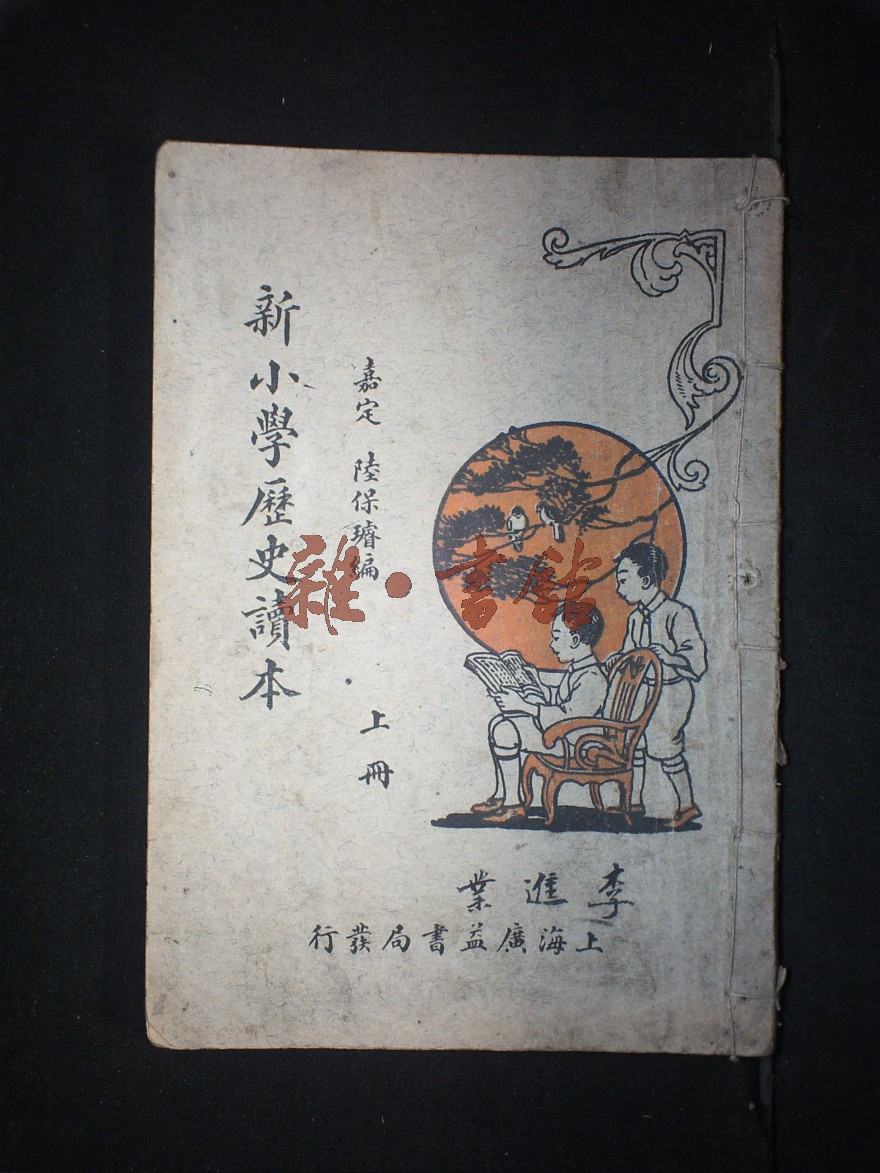 新小學歷史讀本
嘉定 陸保璿編
上冊
李進業
上海廣益書局發行
雜·書館